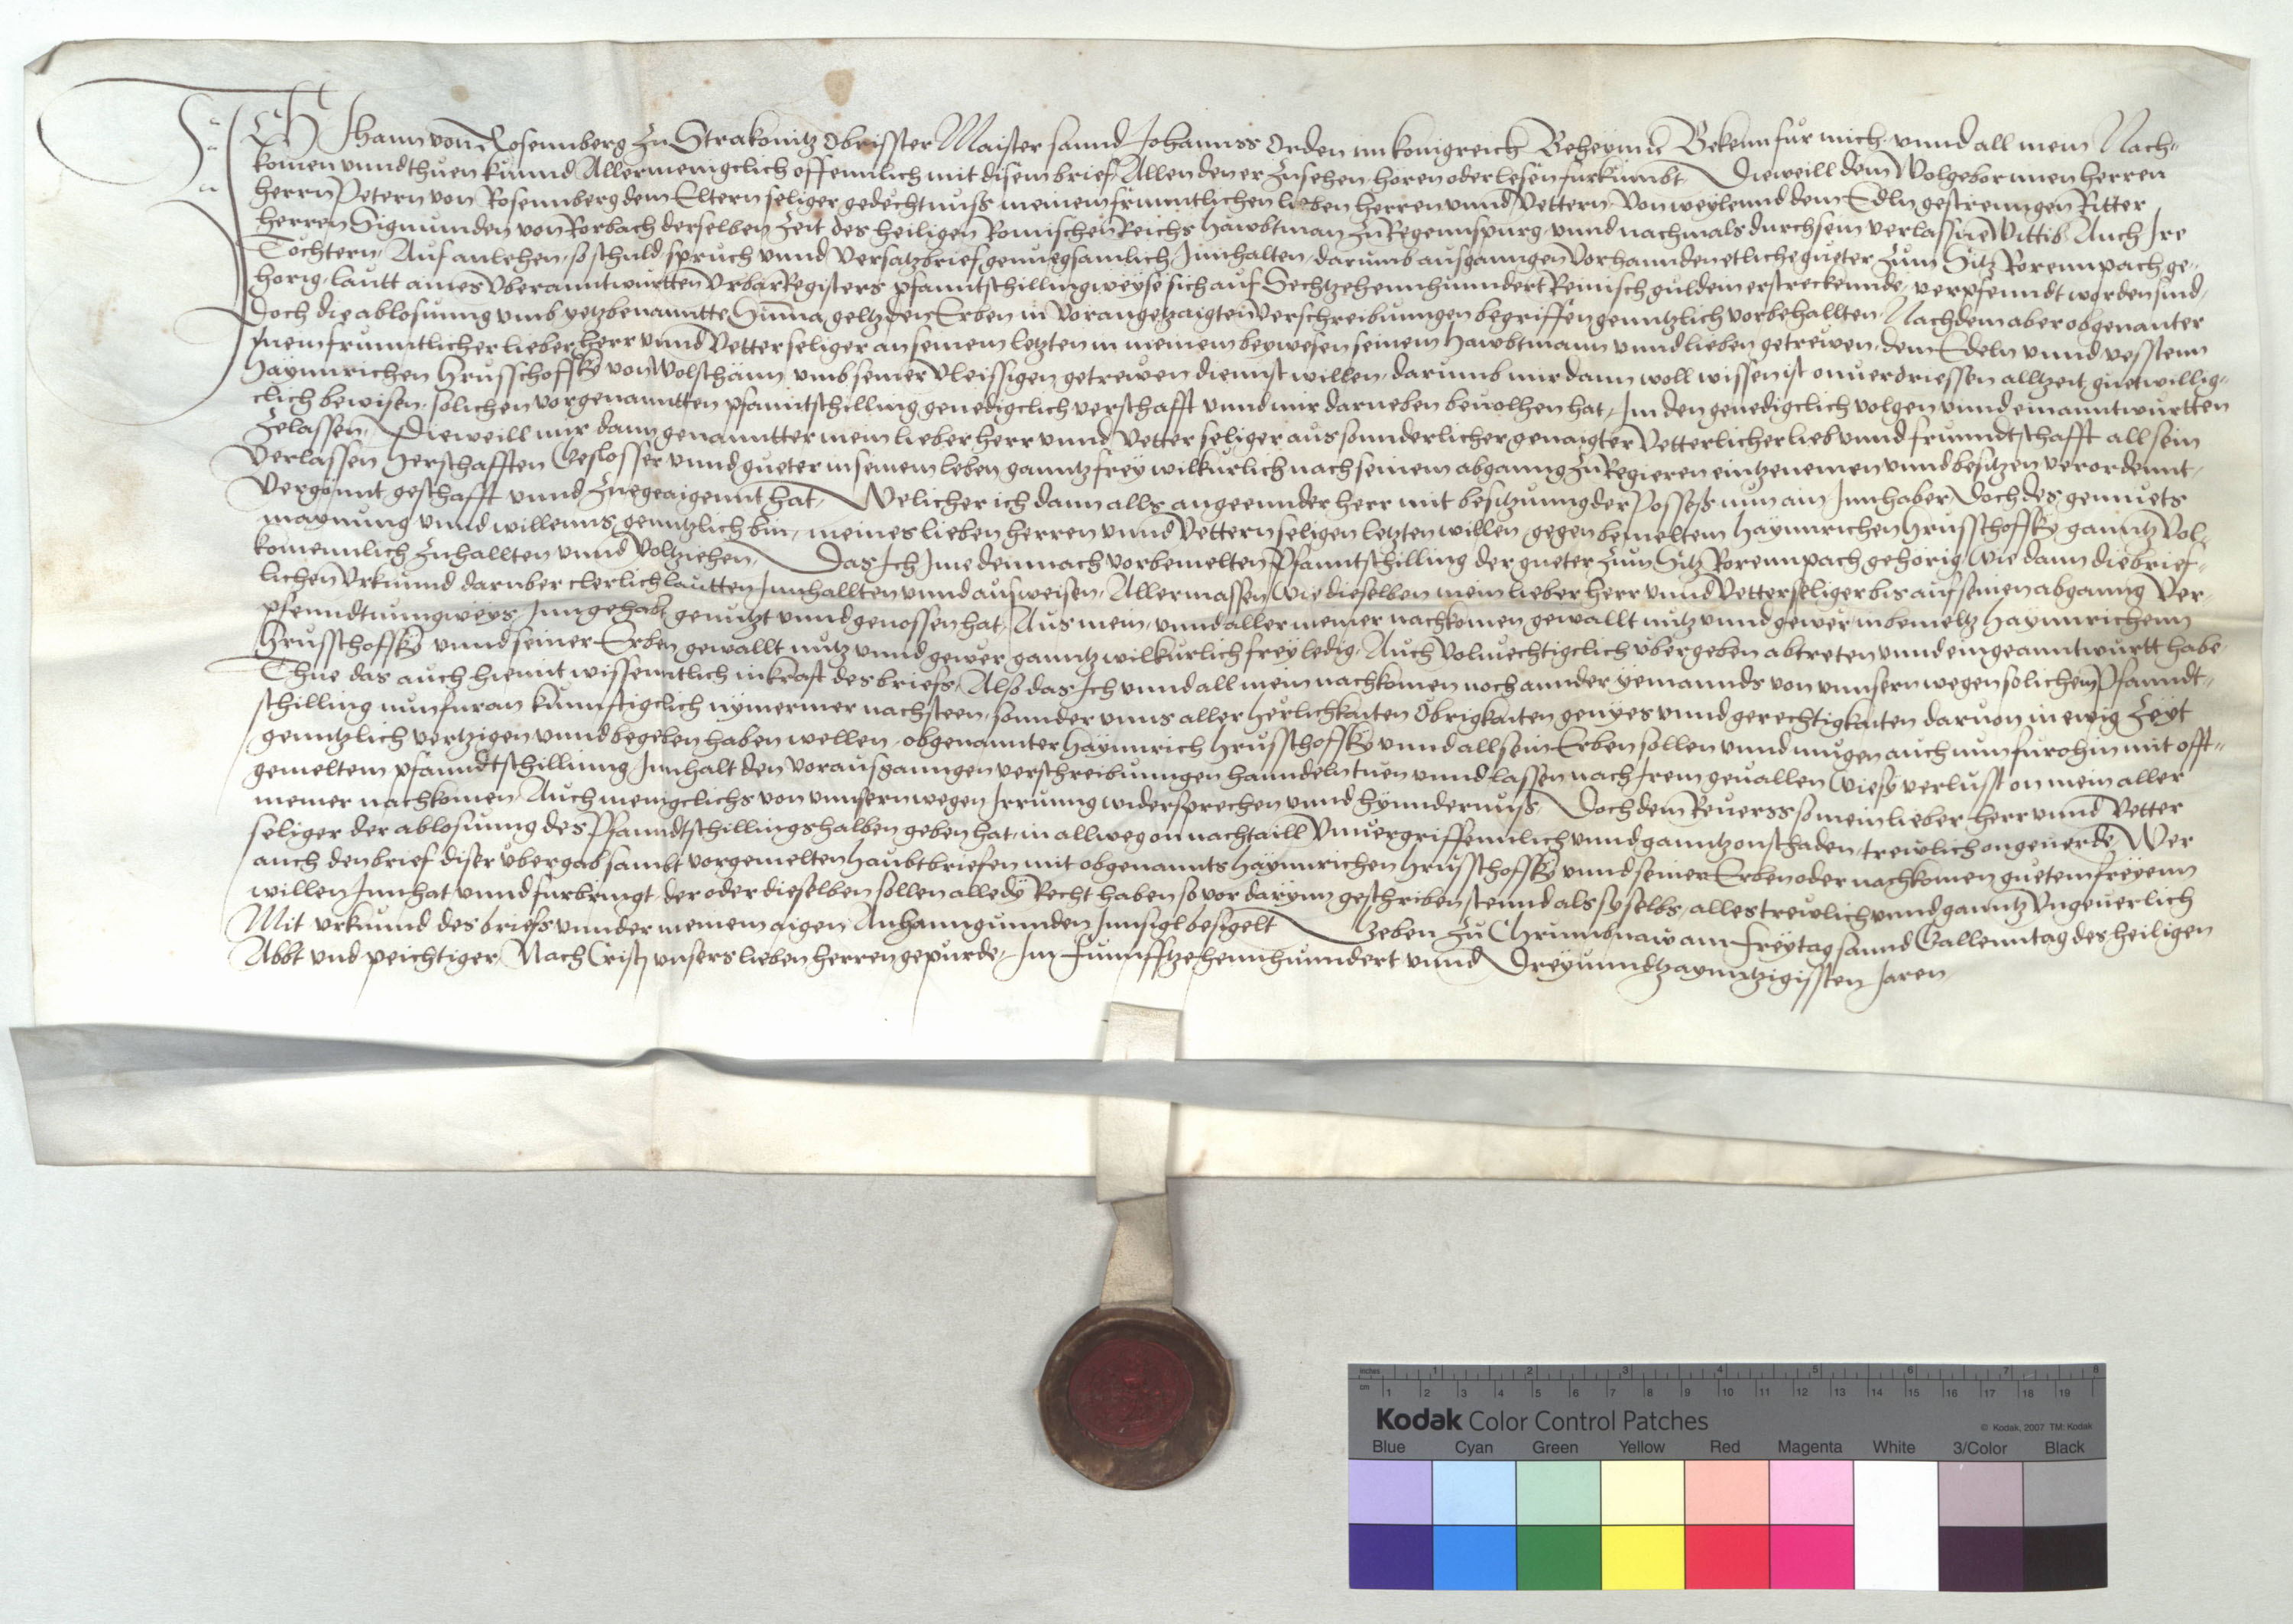 ICH Johann von Rosennberg zu Strakonitz Obrisster Maister sannd Johannss Orden im konigreich Beheymn Bekenn fur mich vnnd all mein Nach-
komen vnnd thuen kunnd Allermenigclich offennlich mit disem brief Allen den er zusehen horen oder lesen furkumbt Dieweill dem Wolgebornnen herren
herrn Petern von Rosennberg dem Eltern seliger gedechtnuss meinem frunntlichen lieben herren vnnd Vettern von weylennd dem Edln gestrenngen Ritter
herren Sigmunden von Rorbach derselben Zeit des heiligen Romischen Reichs hawbtman zu Regennspurg vnnd nachmals durch sein verlassne Wittib Auch Ire
Tochtern Auf anlehen so schuld spruch vnnd Versatzbrief genuegsamlich Innhalten darumb ausganngen Vorhannden etliche gueter zum Sitz Rorennpach ge-
horig lautt aines Vberanntwurtten Vrbar Registers pfanntschilling weyse sich auf Sechtzehennhunndert Reinisch gulden erstreckennde verpfenndt worden sind
Doch die ablosunng vmb yetzbenanntte Summa geltz den Erben in Vorangetzaigten Verschreibunngen begriffen genntzlich vorbehallten Nachdem aber obgenanter
mein frunntlicher lieber herr vnnd Vetter seliger an seinem letzten in meinem beywesen seinem hawbtmann vnnd lieben getrewen dem Edeln vnnd vesstenn
Haynnrichen Hrusschoffsky von Wolschann vmb seiner Vleissigen getrewen diennst willen darumb mir dann woll wissen ist onuerdriessen alltzeit guetwillig-
clich bewisen solichen vorgenanntten pfanntschilling genedigclich verschafft vnnd mir darneben beuolhen hat Im den genedigclich volgen vnnd einanntwurtten
zelassen Dieweill mir dann genanntter mein lieber herr vnnd Vetter seliger aus sonnderlicher genaigter Vetterlicher lieb vnnd frunndtschafft all sein
Verlassen herschafften Geslosser vnnd gueter in seinem leben ganntz frey wilkurlich nach seinem abganng zu Regieren eintzenemen vnnd besitzen verordennt
Vergonnt geschafft vnnd zuegeaigennt hat Welicher ich dann alls angeennder herr mit besitzunng der Possess nun ain Innhaber Doch des gemuets
maynung vnnd willenns genntzlich bin meines lieben herren vnnd Vettern seligen letzten willen gegen bemeltem Haynnrichen Hrusschoffsky ganntz Vol-
komennlich zuhallten vnnd Voltziehen Das Ich Ime demnach vorbemelten Pfanntschilling der gueter zum Sitz Rorennpach gehorig wie dann die brief-
lichen Vrkunnd daruber clerlich lautten Innhallten vnnd ausweisen Allermassen wie dieselben mein lieber herr vnnd Vetter seliger bis auf seinen abganng Ver-
pfenndtunngweys Inngehabt genutzt vnnd genossen hat Aus mein vnnd aller meiner nachkomen gewallt nutz vnnd gewer in bemeltz Haynnrichenn
Hrusschoffsky vnnd seiner Erben gewallt nutz vnnd gewer ganntz wilkurlich frey ledig Auch Volmechtigclich vbergeben abtreten vnnd eingeanntwurtt habe
Thue das auch hiemit wissenntlich in kraft des briefs Also das Ich vnnd all mein nachkomen noch annder yemannds von vnnsern wegen solichem Pfanndt-
schilling nun furan kunnftigclich nymermer nachsteen sonnder vnns aller herlichkaiten Obrigkaiten genyes vnnd gerechtigkaiten daruon in ewig Zeyt
genntzlich vertzigen vnnd begeben haben wellen obgenannter Haynnrich Hrusschoffsky vnnd all sein Erben sollen vnnd mugen auch nun furohin mit offt-
gemeltem pfanndtschillinng Innhalt den vorausganngen verschreibunngen hanndeln tuen vnnd lassen nach Irem geuallen wie sy verlusst on mein aller
meiner nachkomen Auch menigclichs von vnnsern wegen Irrunng widersprechen vnnd hynndernuss Doch dem Reuerss so mein lieber herr vnnd Vetter
seliger der ablosunng des Pfanndtschillings halben geben hat in allweg on nachtaill Vnuergriffennlich vnnd ganntz on schaden trewlich ongeuerde Wer
auch den brief diser vbergab sambt vorgemelten haubtbriefen mit obgenannts Haynnrichen Hrusschoffsky vnnd seiner Erben oder nachkomen guetem freyenn
willen Innhat vnnd furbringt der oder dieselben sollen alle dy Recht haben so vor darynn geschriben stennd als sy selbs alles trewlich vnnd ganntz Vngeuerlich
Mit vrkunnd des briefs vnnder meinem aigen Anhanngunnden Innsigl besigelt Geben zu Chrumbnaw am Freytag sannd Gallenntag des heiligen
Abbt vnd peichtiger Nach Cristj vnsers lieben herren gepurde Im Funnfftzehennhunndert vnnd Dreyunndtzaynntzigissten Jaren
inches 1 2 3 4 5 6 7 8
cm 1 2 3 4 5 6 7 8 9 10 11 12 13 14 15 16 17 18 19
Kodak Color Control Patches © Kodak, 2007 TM: Kodak
Blue Cyan Green Yellow Red Magenta White 3/Color Black